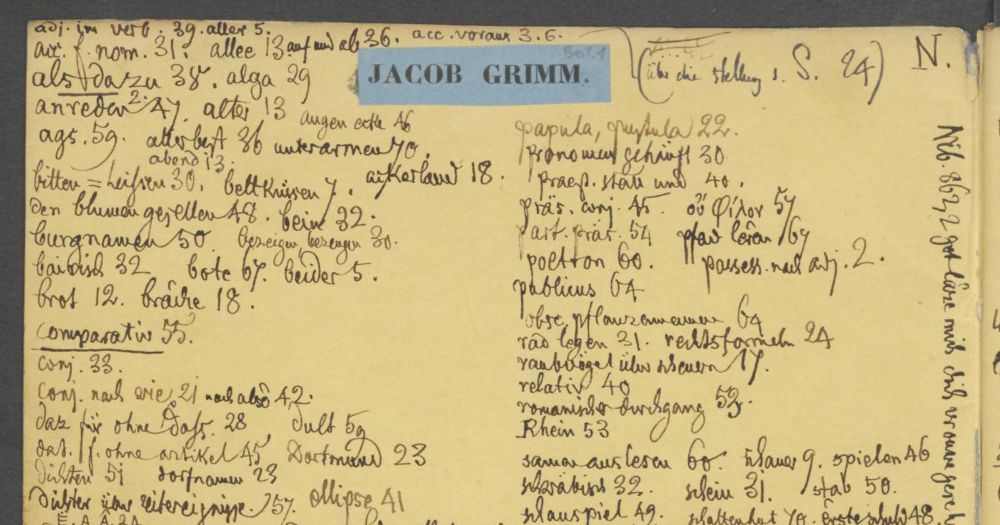 adj. im verb. 39. aller 5.
acc. f. nom. 31. allee 13. auf und ab 36. acc. voraus 3. 6.
als dazu 38. alga 29
JACOB GRIMM.
(über die stellung s. S. 24)
N.
anreden 2. 47. alter 13 augen ecke 46
ags. 59. allerbest 36 unterarmen 70.
abend 13.
bitten = heissen 30. bettküssen 7. ackerland 18.
den blumen gesellen 48. beim 32.
burgnamen 50. bezeigen, bezeugen 30.
bairisch 32 bote 67. beider 5.
brot 12. brâche 18.
comparativ 55.
conj. 33.
conj. nach wie 21 nach also 42.
daz für ohne dass. 28 dult 59
dat. f. ohne artikel 45 Dortmund 23
dichten 51 dorfnamen 23
dichter über zeitereignisse 57. ellipse 41
papula, pustula 22.
pronomen gehäuft 30
praep. statt und 40.
präs. conj. 45. οὐ φίλον 57
part. präs. 54 pfad leren 67
poltron 60. possess. nach adj. 2.
publicus 64
obsc. pflanzennamen 64
rad legen 31. rechtsformeln 24
raubvögel über scheuern 17.
relativ 40
romanischer durchgang 52.
Rhein 53
samen aus lesen 60. schauer 9. spielen 46
schwäbisch 32. schein 31. stab 50.
schauspiel 49. schattenhut 70. erste schuld 48.
Nib. 862,2 got lâze mich dich vrouwe